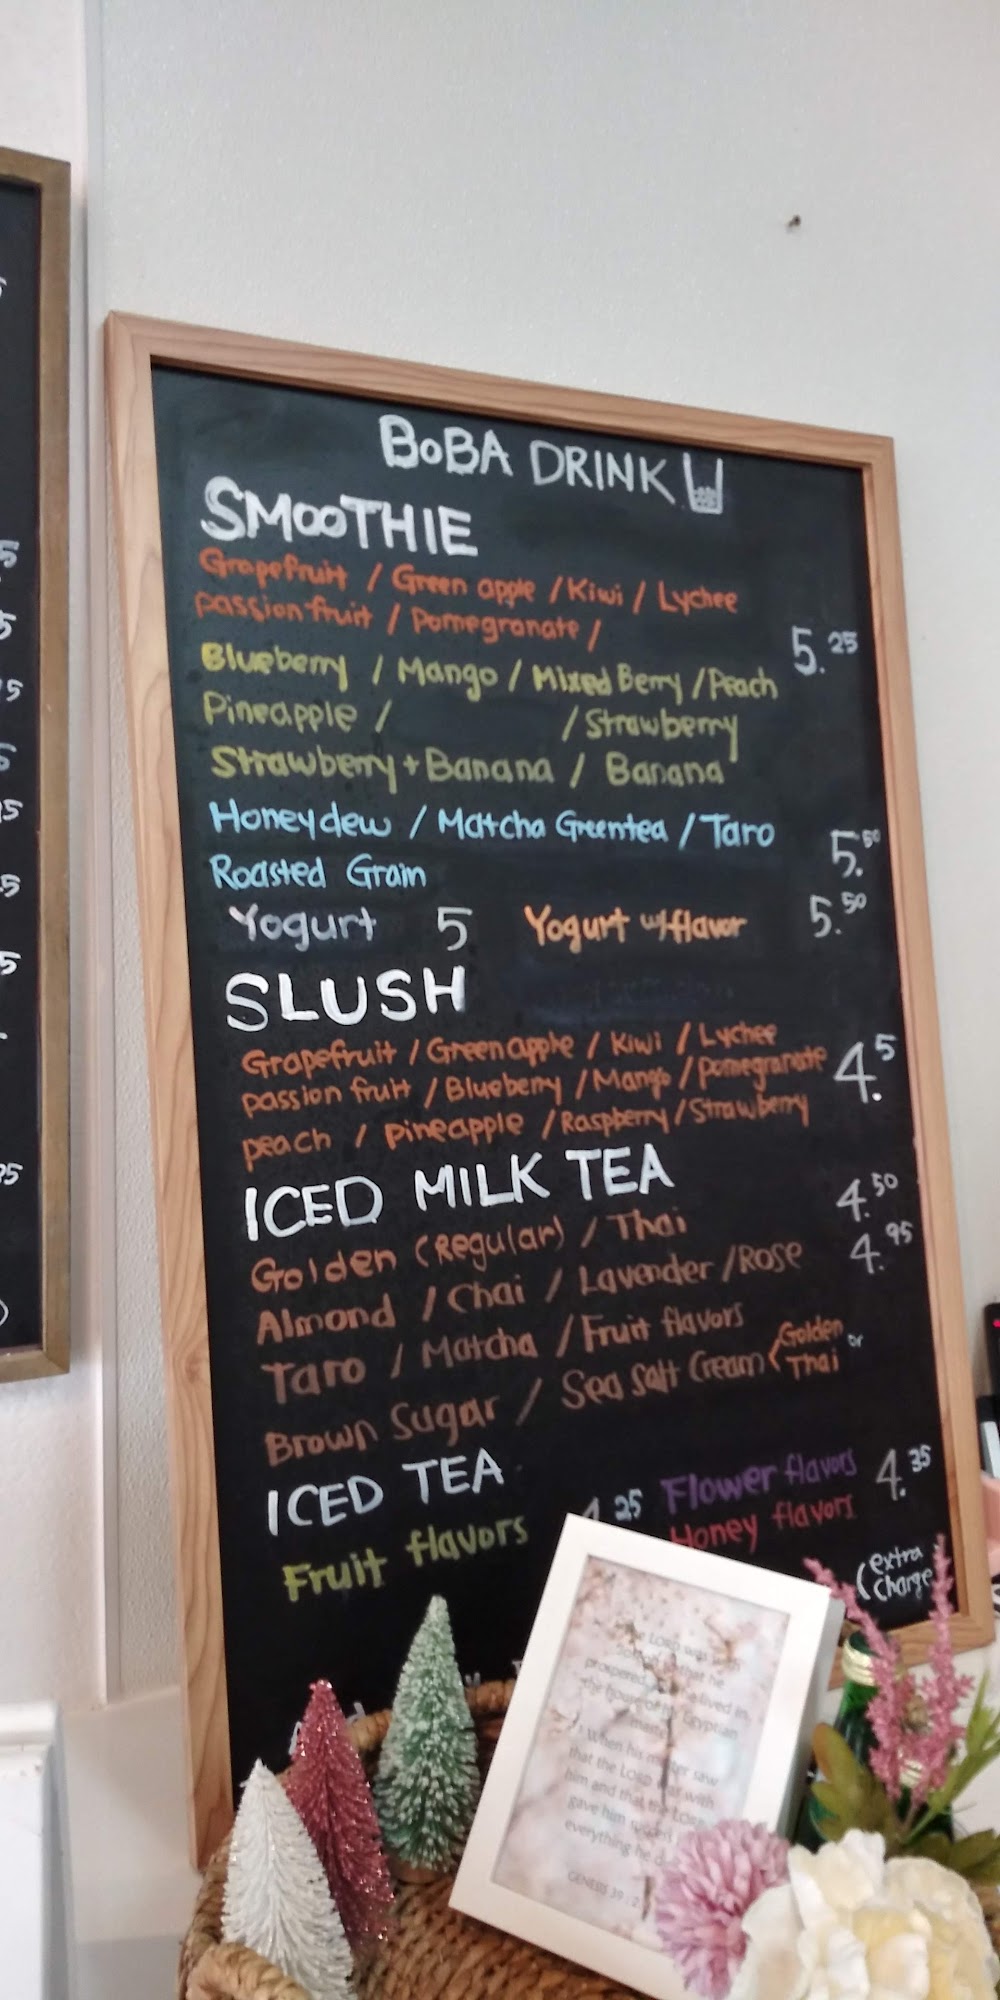 BOBA DRINK
SMOOTHIE
Grapefruit / Green apple / Kiwi / Lychee
passion fruit / Pomegranate /
5.25
Blueberry / Mango / Mixed Berry / Peach
Pineapple / / Strawberry
Strawberry + Banana / Banana
Honeydew / Matcha Greentea / Taro
Roasted Grain 5.50
Yogurt 5 Yogurt w/flavor 5.50
SLUSH
Grapefruit / Green apple / Kiwi / Lychee
passion fruit / Blueberry / Mango / pomegranate 4.5
peach / pineapple / Raspberry / Strawberry
ICED MILK TEA
Golden (Regular) / Thai 4.50
Almond / Chai / Lavender / Rose 4.95
Taro / Matcha / Fruit flavors
Brown Sugar / Sea Salt Cream < Golden or
Thai
ICED TEA
Fruit flavors 4.25 Flower flavors 4.35
Honey flavors
(extra
charge
LORD was
prospered lived in
the house of Egyptian
When his master saw
that the LORD was with
him and that the LORD
gave him
everything he
GENESIS 39:2